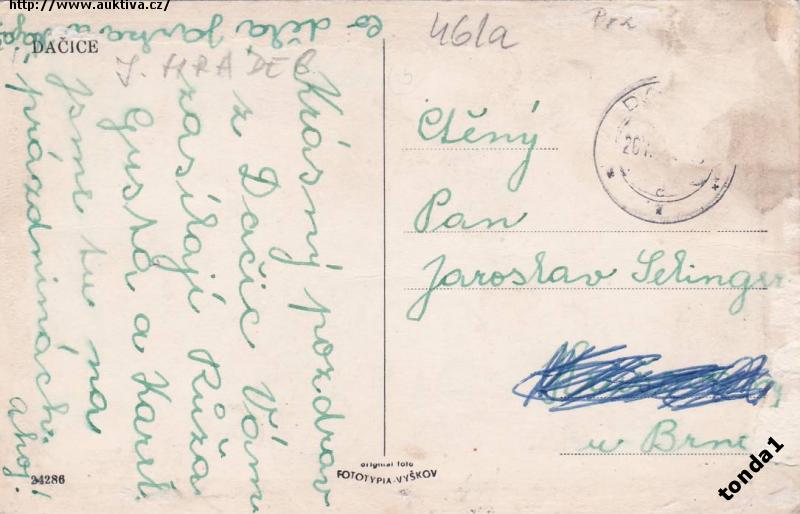 http://www.auktiva.cz/
DAČICE
J. HRADEC
461a
Krásný pozdrav
z Dačic Vám
zasílají Růža
Gusta a Karel.
Jsme tu na
prázdninách.
ahoj!
co dělá Janka a
Ctěný
Pan
Jaroslav Selinger
u Brna
24286
original foto
FOTOTYPIA-VYŠKOV
tonda1